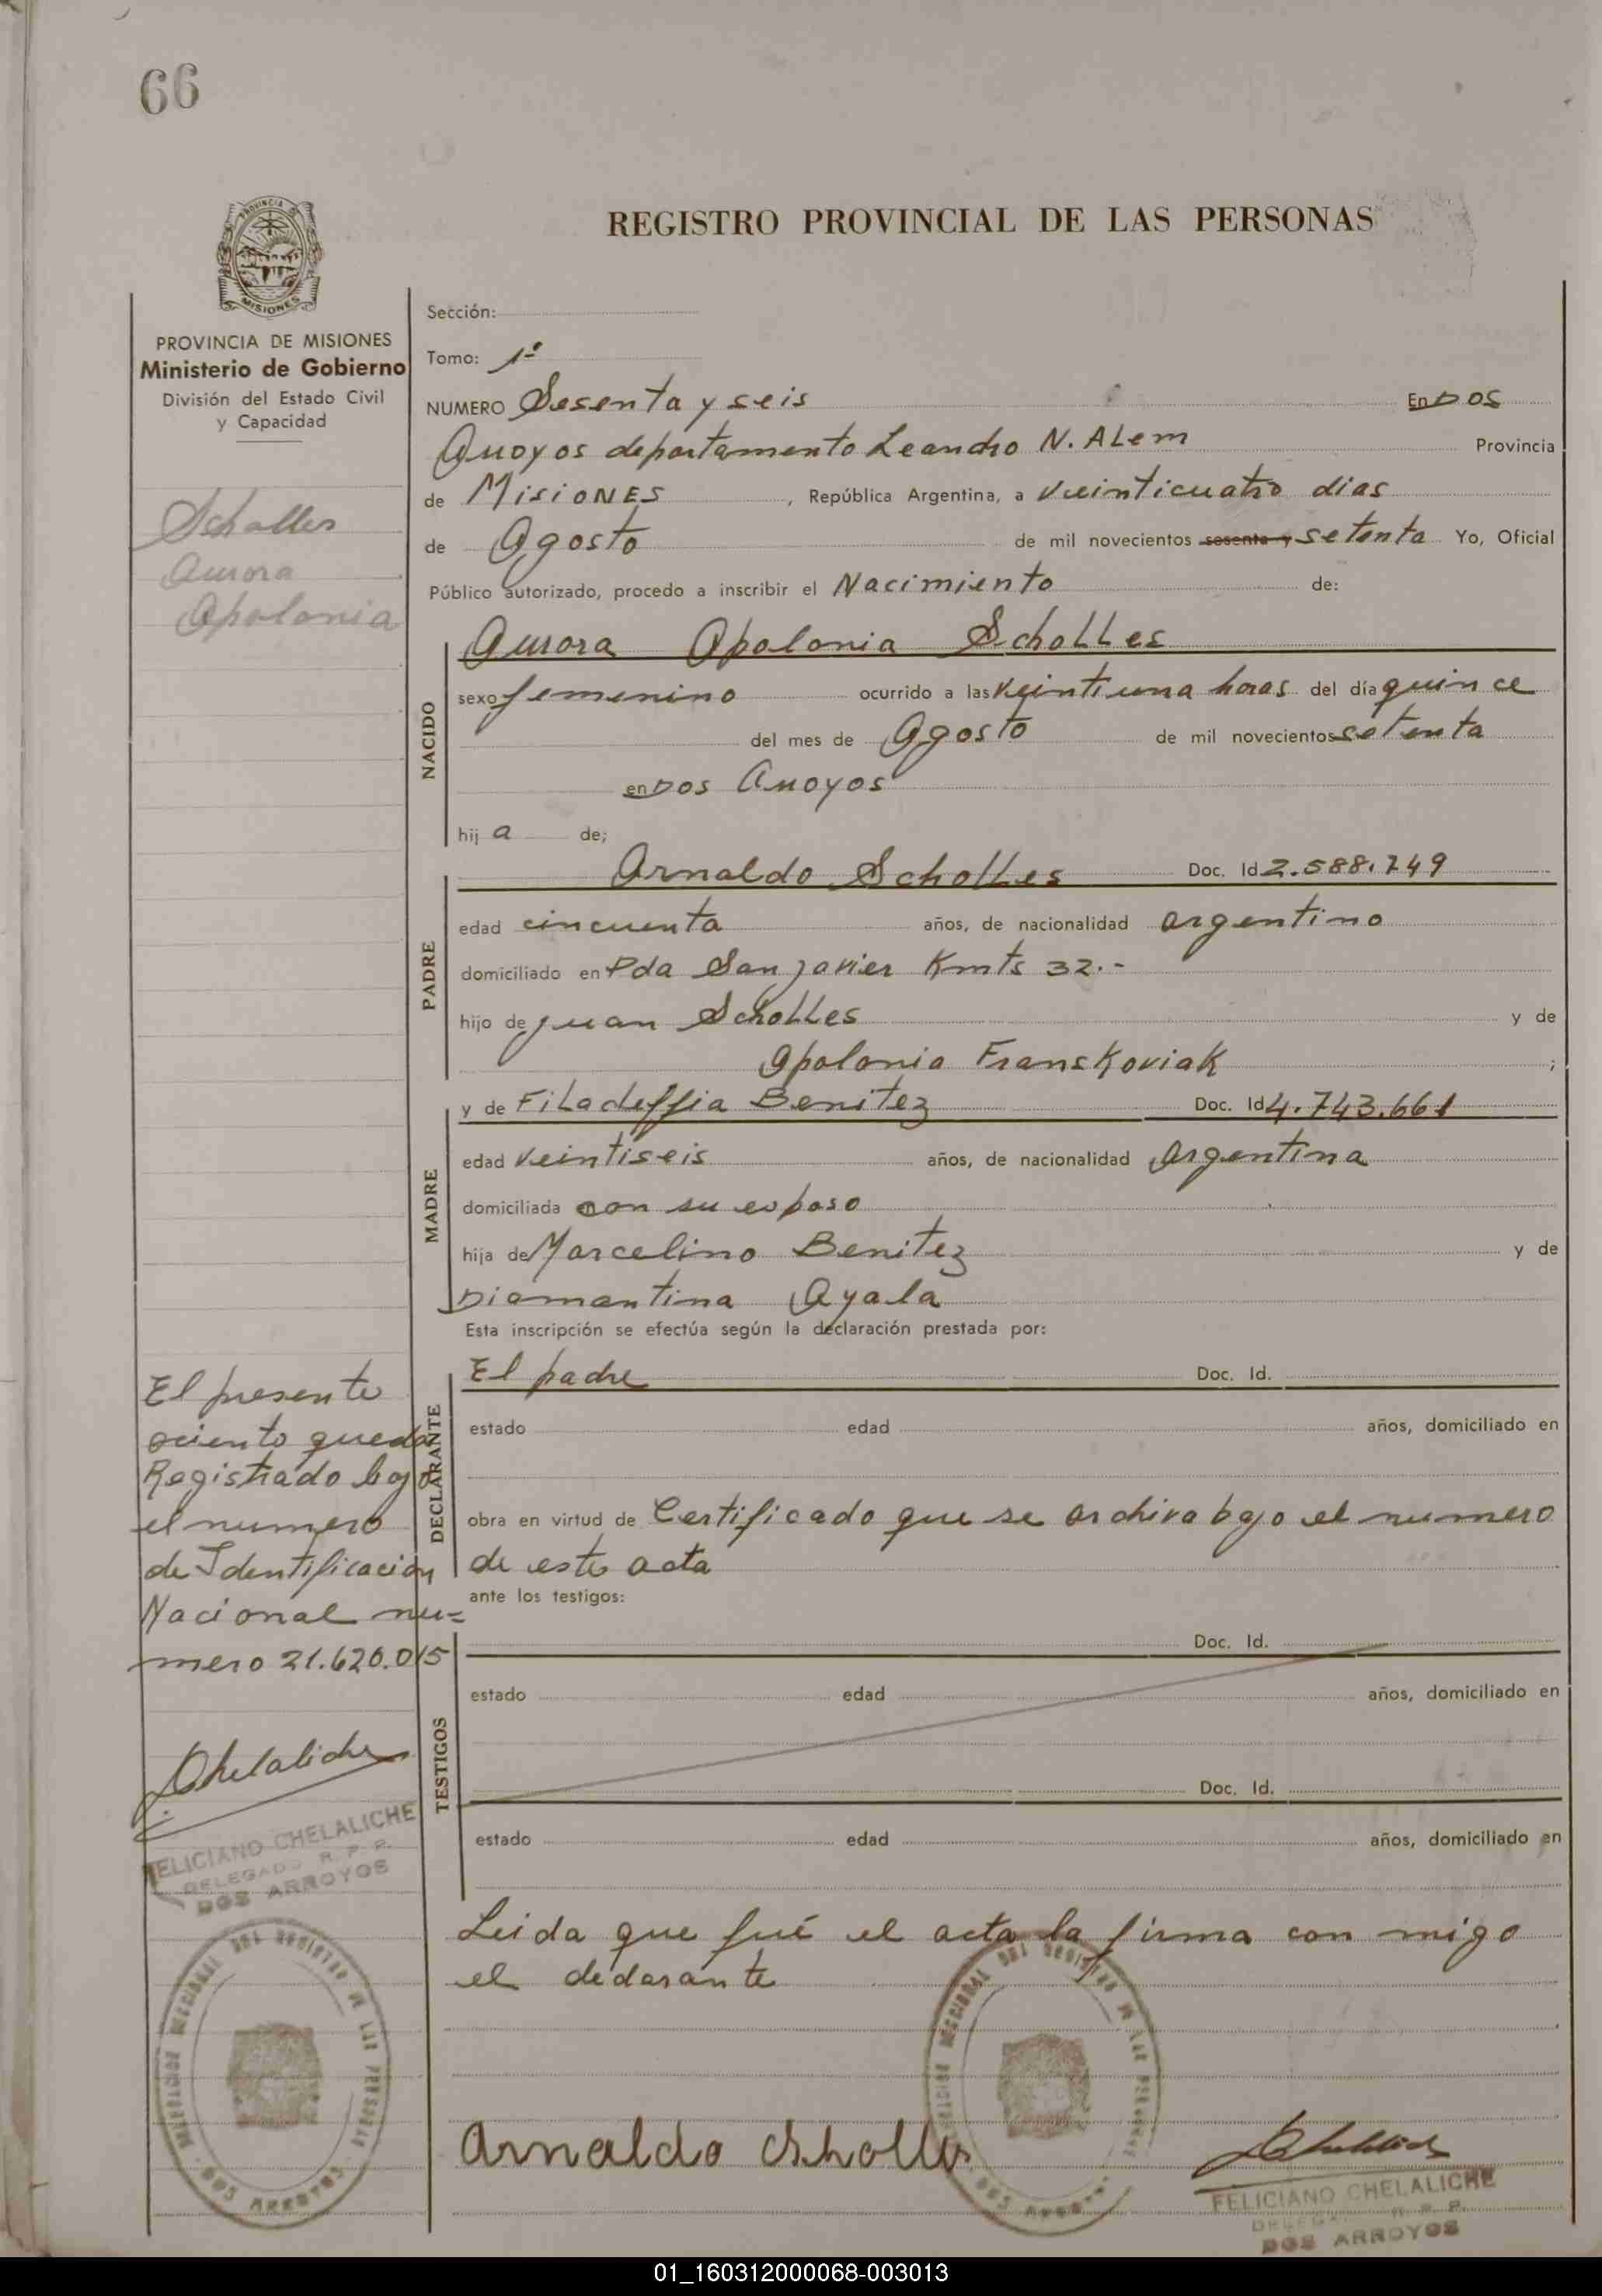 66
REGISTRO PROVINCIAL DE LAS PERSONAS
PROVINCIA DE
MISIONES
PROVINCIA DE MISIONES
Ministerio de Gobierno
División del Estado Civil
y Capacidad
Scholles
Aurora
Apolonia
Sección:
Tomo: 1º
NUMERO Sesenta y seis En Dos
Arroyos departamento Leandro N. Alem Provincia
de Misiones, República Argentina, a veinticuatro dias
de Agosto de mil novecientos sesenta y setenta Yo, Oficial
Público autorizado, procedo a inscribir el Nacimiento de:
NACIDO
Aurora Apolonia Scholles
sexo femenino ocurrido a las veintiuna horas del día quince
del mes de Agosto de mil novecientos setenta
en Dos Arroyos
hij a de;
PADRE
Arnaldo Scholles Doc. Id 2.588.749
edad cincuenta años, de nacionalidad argentino
domiciliado en Pda San Javier Kmts 32.-
hijo de Juan Scholles y de
Apolonia Franskoviak ;
MADRE
y de Filadelfia Benitez Doc. Id 4.743.661
edad veintiseis años, de nacionalidad Argentina
domiciliada con su esposo
hija de Marcelino Benitez y de
Diamantina Ayala
Esta inscripción se efectúa según la declaración prestada por:
DECLARANTE
El padre Doc. Id.
estado edad años, domiciliado en
obra en virtud de Certificado que se archiva bajo el numero
de este acta
ante los testigos:
TESTIGOS
Doc. Id.
estado edad años, domiciliado en
Doc. Id.
estado edad años, domiciliado en
Leida que fué el acta la firma con migo
el declarante
El presente
aciento queda
Registrado bajo
el numero
de Identificacion
Nacional nu=
mero 21.620.015
Chelaliche
FELICIANO CHELALICHE
DELEGADO R. P. P.
DOS ARROYOS
DEL REGISTRO DE LAS PERSONAS
DOS ARROYOS
Arnaldo Scholles
FELICIANO CHELALICHE
DELEGADO R. P. P.
DOS ARROYOS
01_160312000068-003013